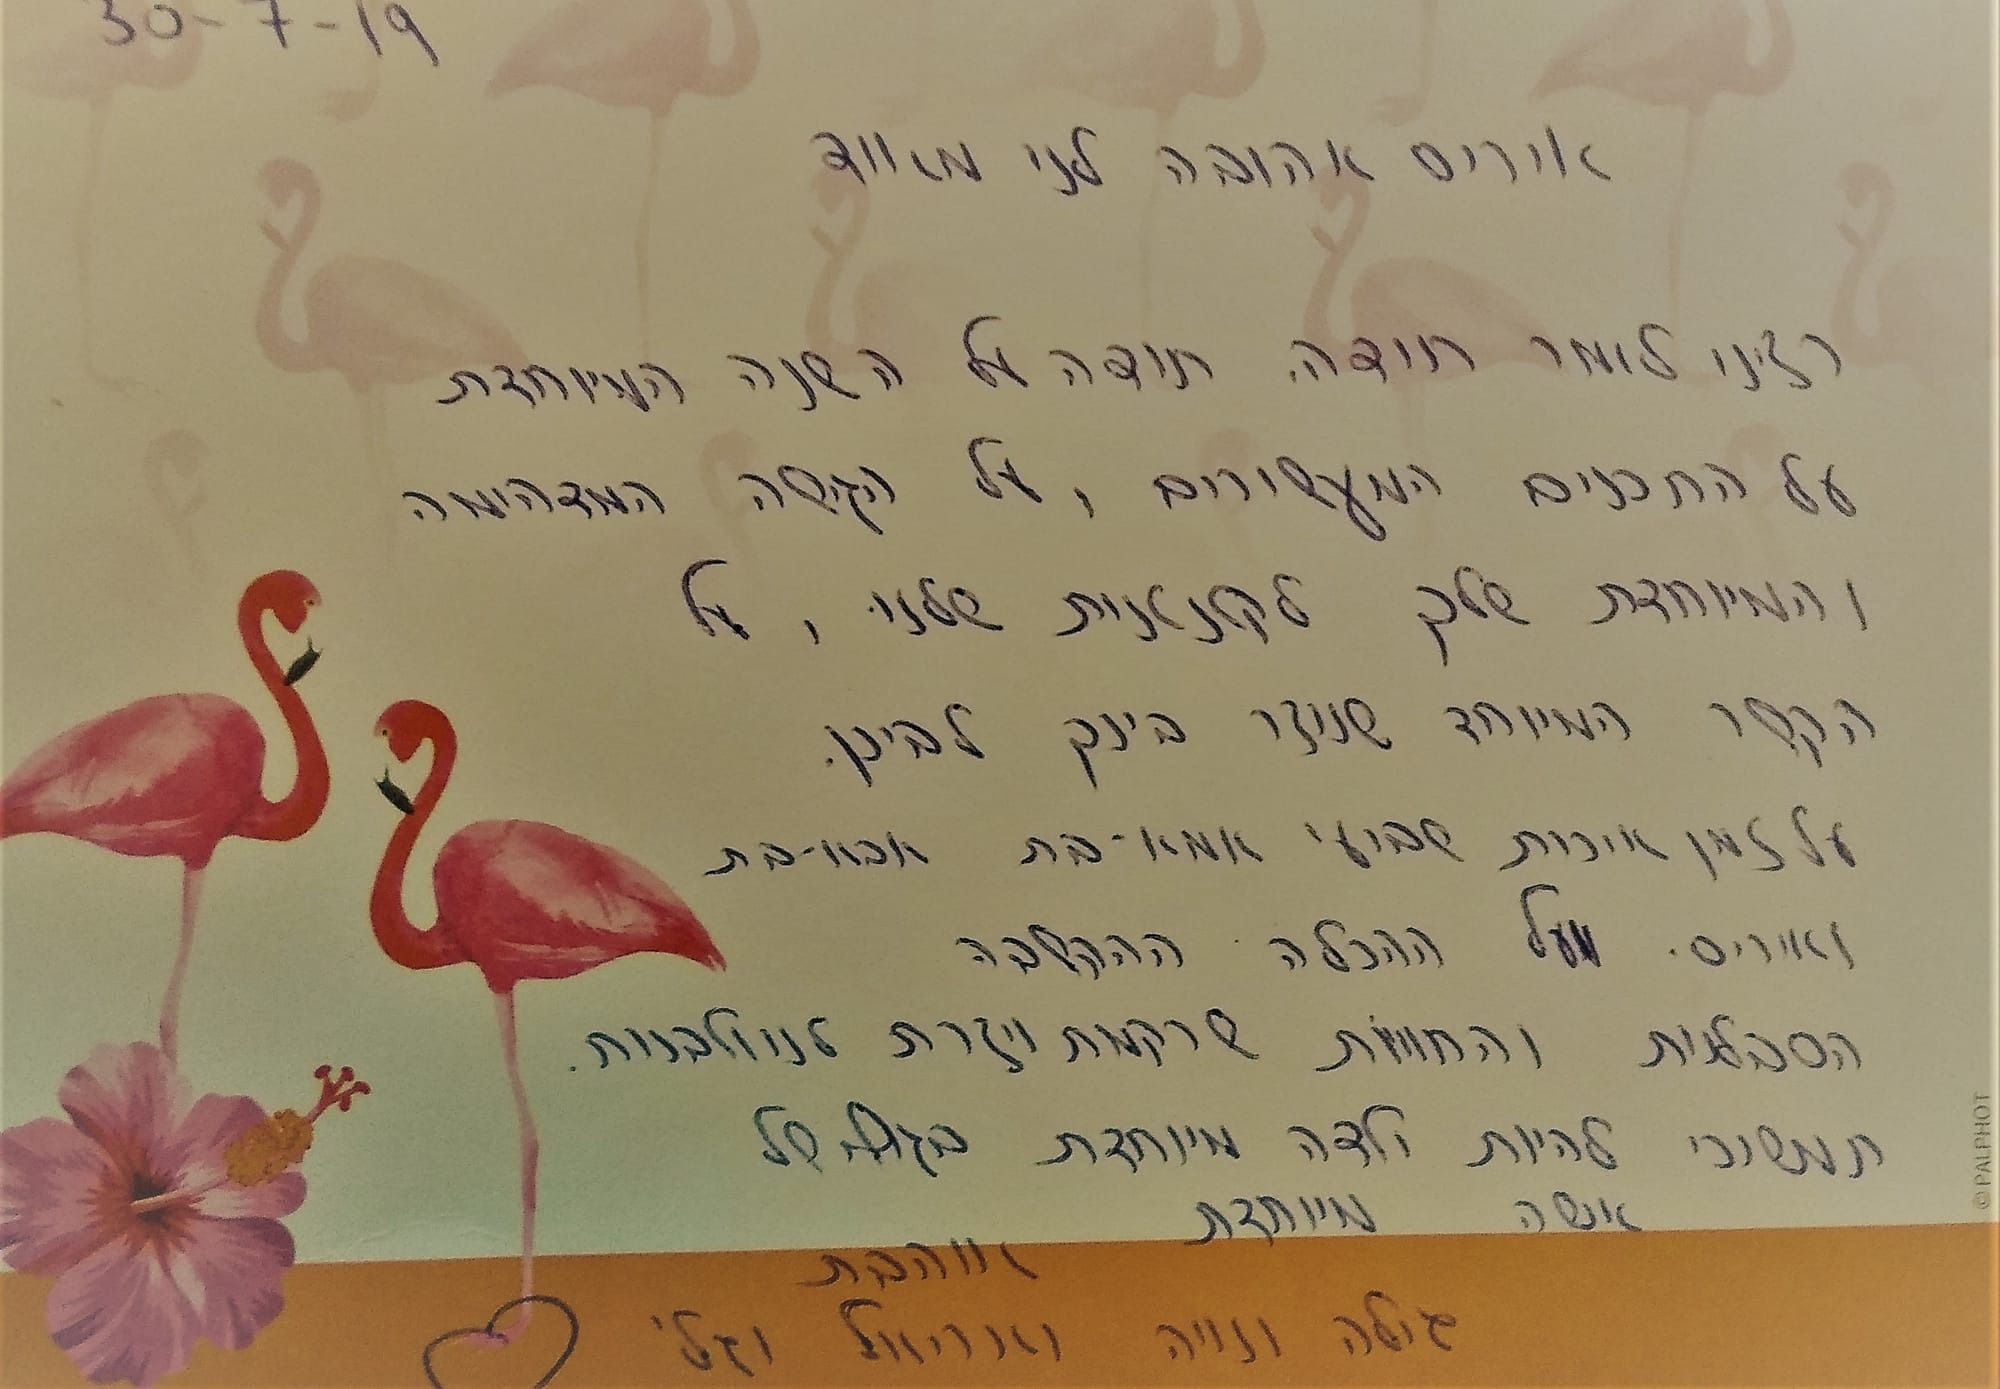 30-7-19
אוריס אהובה לנו מאווד
רצינו לומר תודה. תודה על השנה המיוחדת
על התכנים המעשורים, על הגישה המדהימה
והמיוחדת שלך לקטנאנית שלנו, על
הקשר המיוחד שנוצר בינך לבינן.
על זמן איכות שבועי אמא-בת אבא-בת
ואוריס. ועל ההכלה ההקשבה
הסבלנית והחוויות שרקמת ויצרת לנו ולבנות.
תמשיכי להיות ילדה מיוחדת בגוף של
אישה מיוחדת
אווהבת
גילה ונויה ואוריאל וגלי
© PALPHOT